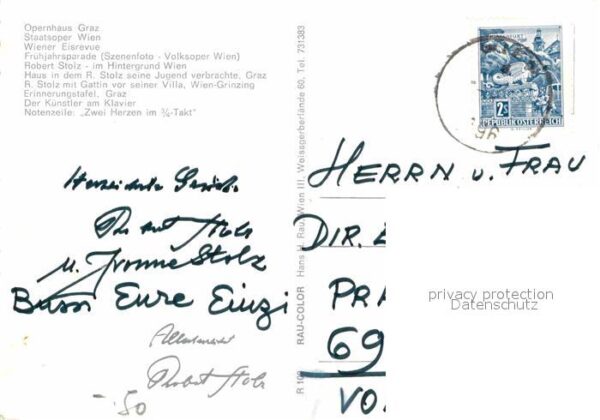 Opernhaus Graz
Staatsoper Wien
Wiener Eisrevue
Frühjahrsparade (Szenenfoto - Volksoper Wien)
Robert Stolz - im Hintergrund Wien
Haus in dem R. Stolz seine Jugend verbrachte, Graz
R. Stolz mit Gattin vor seiner Villa, Wien-Grinzing
Erinnerungstafel, Graz
Der Künstler am Klavier
Notenzeile: „Zwei Herzen im ¾-Takt"
Robert Stolz
u. Yvonne Stolz
Bussi Eure Einzi
Robert Stolz
50
R 100 RAU-COLOR Hans H. Rau, Wien III, Weissgerberlände 60, Tel. 731383
2S
REPUBLIK ÖSTERREICH
HERRN u. FRAU
DIR.
PRA
69
VO
privacy protection
Datenschutz